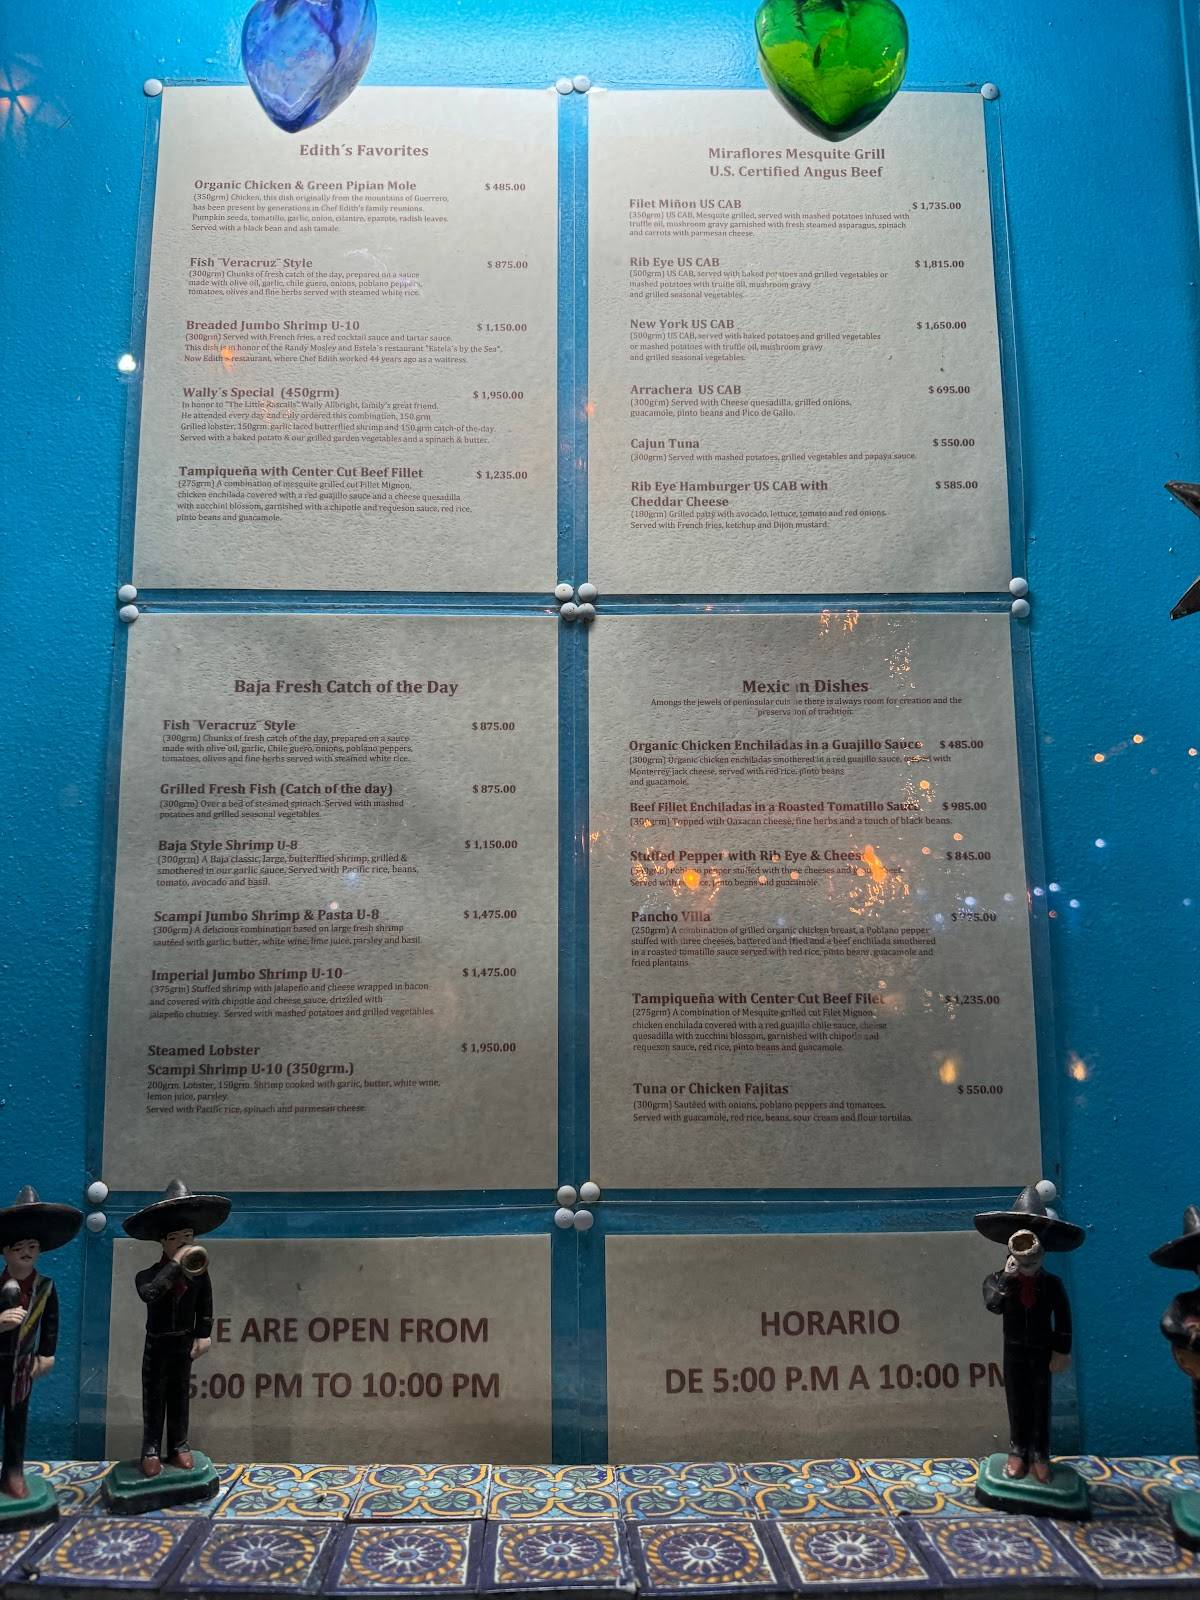 Edith´s Favorites
Organic Chicken & Green Pipian Mole $ 485.00
(350grm) Chicken, this dish originally from the mountains of Guerrero,
has been present by generations in Chef Edith's family reunions.
Pumpkin seeds, tomatillo, garlic, onion, cilantro, epazote, radish leaves.
Served with a black bean and ash tamale.
Fish ¨Veracruz¨ Style $ 875.00
(300grm) Chunks of fresh catch of the day, prepared on a sauce
made with olive oil, garlic, chile guero, onions, poblano peppers,
tomatoes, olives and fine herbs served with steamed white rice.
Breaded Jumbo Shrimp U-10 $ 1,150.00
(300grm) Served with French fries, a red cocktail sauce and tartar sauce.
This dish is in honor of the Randy Mosley and Estela´s restaurant "Estela´s by the Sea".
Now Edith´s restaurant, where Chef Edith worked 44 years ago as a waitress.
Wally´s Special (450grm) $ 1,950.00
In honor to "The Little Rascalls" Wally Allbright, family's great friend.
He attended every day and only ordered this combination, 150.grm
Grilled lobster, 150grm. garlic laced butterflied shrimp and 150.grm catch-of-the-day.
Served with a baked potato & our grilled garden vegetables and a spinach & butter.
Tampiqueña with Center Cut Beef Fillet $ 1,235.00
(275grm) A combination of mesquite grilled cut Fillet Mignon,
chicken enchilada covered with a red guajillo sauce and a cheese quesadilla
with zucchini blossom, garnished with a chipotle and requeson sauce, red rice,
pinto beans and guacamole.
Miraflores Mesquite Grill
U.S. Certified Angus Beef
Filet Miñon US CAB $ 1,735.00
(350grm) US CAB, Mesquite grilled, served with mashed potatoes infused with
truffle oil, mushroom gravy garnished with fresh steamed asparagus, spinach
and carrots with parmesan cheese.
Rib Eye US CAB $ 1,815.00
(500grm) US CAB, served with baked potatoes and grilled vegetables or
mashed potatoes with truffle oil, mushroom gravy
and grilled seasonal vegetables.
New York US CAB $ 1,650.00
(500grm) US CAB, served with baked potatoes and grilled vegetables
or mashed potatoes with truffle oil, mushroom gravy
and grilled seasonal vegetables.
Arrachera US CAB $ 695.00
(300grm) Served with Cheese quesadilla, grilled onions,
guacamole, pinto beans and Pico de Gallo.
Cajun Tuna $ 550.00
(300grm) Served with mashed potatoes, grilled vegetables and papaya sauce.
Rib Eye Hamburger US CAB with $ 585.00
Cheddar Cheese
(180grm) Grilled patty with avocado, lettuce, tomato and red onions.
Served with French fries, ketchup and Dijon mustard.
Baja Fresh Catch of the Day
Fish ¨Veracruz¨ Style $ 875.00
(300grm) Chunks of fresh catch of the day, prepared on a sauce
made with olive oil, garlic, Chile guero, onions, poblano peppers,
tomatoes, olives and fine herbs served with steamed white rice.
Grilled Fresh Fish (Catch of the day) $ 875.00
(300grm) Over a bed of steamed spinach. Served with mashed
potatoes and grilled seasonal vegetables.
Baja Style Shrimp U-8 $ 1,150.00
(300grm) A Baja classic, large, butterflied shrimp, grilled &
smothered in our garlic sauce, Served with Pacific rice, beans,
tomato, avocado and basil.
Scampi Jumbo Shrimp & Pasta U-8 $ 1,475.00
(300grm) A delicious combination based on large fresh shrimp
sautéed with garlic, butter, white wine, lime juice, parsley and basil.
Imperial Jumbo Shrimp U-10 $ 1,475.00
(375grm) Stuffed shrimp with jalapeño and cheese wrapped in bacon
and covered with chipotle and cheese sauce, drizzled with
jalapeño chutney. Served with mashed potatoes and grilled vegetables.
Steamed Lobster $ 1,950.00
Scampi Shrimp U-10 (350grm.)
200grm. Lobster, 150grm. Shrimp cooked with garlic, butter, white wine,
lemon juice, parsley.
Served with Pacific rice, spinach and parmesan cheese.
Mexic n Dishes
Amongst the jewels of peninsular cuisine there is always room for creation and the
preservation of tradition.
Organic Chicken Enchiladas in a Guajillo Sauce $ 485.00
(300grm) Organic chicken enchiladas smothered in a red guajillo sauce, with
Monterrey jack cheese, served with red rice, pinto beans
and guacamole.
Beef Fillet Enchiladas in a Roasted Tomatillo Sauce $ 985.00
(300grm) Topped with Oaxacan cheese, fine herbs and a touch of black beans.
Stuffed Pepper with Rib Eye & Cheese $ 845.00
Poblano pepper stuffed with three cheeses and beef.
Served with rice, pinto beans and guacamole.
Pancho Villa
(250grm) A combination of grilled organic chicken breast, a Poblano pepper
stuffed with three cheeses, battered and fried and a beef enchilada smothered
in a roasted tomatillo sauce served with red rice, pinto beans, guacamole and
fried plantains.
Tampiqueña with Center Cut Beef Filet $ 1,235.00
(275grm) A combination of Mesquite grilled cut Filet Mignon,
chicken enchilada covered with a red guajillo chile sauce, cheese
quesadilla with zucchini blossom, garnished with chipotle and
requeson sauce, red rice, pinto beans and guacamole.
Tuna or Chicken Fajitas $ 550.00
(300grm) Sautéed with onions, poblano peppers and tomatoes.
Served with guacamole, red rice, beans, sour cream and flour tortillas.
WE ARE OPEN FROM
5:00 PM TO 10:00 PM
HORARIO
DE 5:00 P.M A 10:00 PM